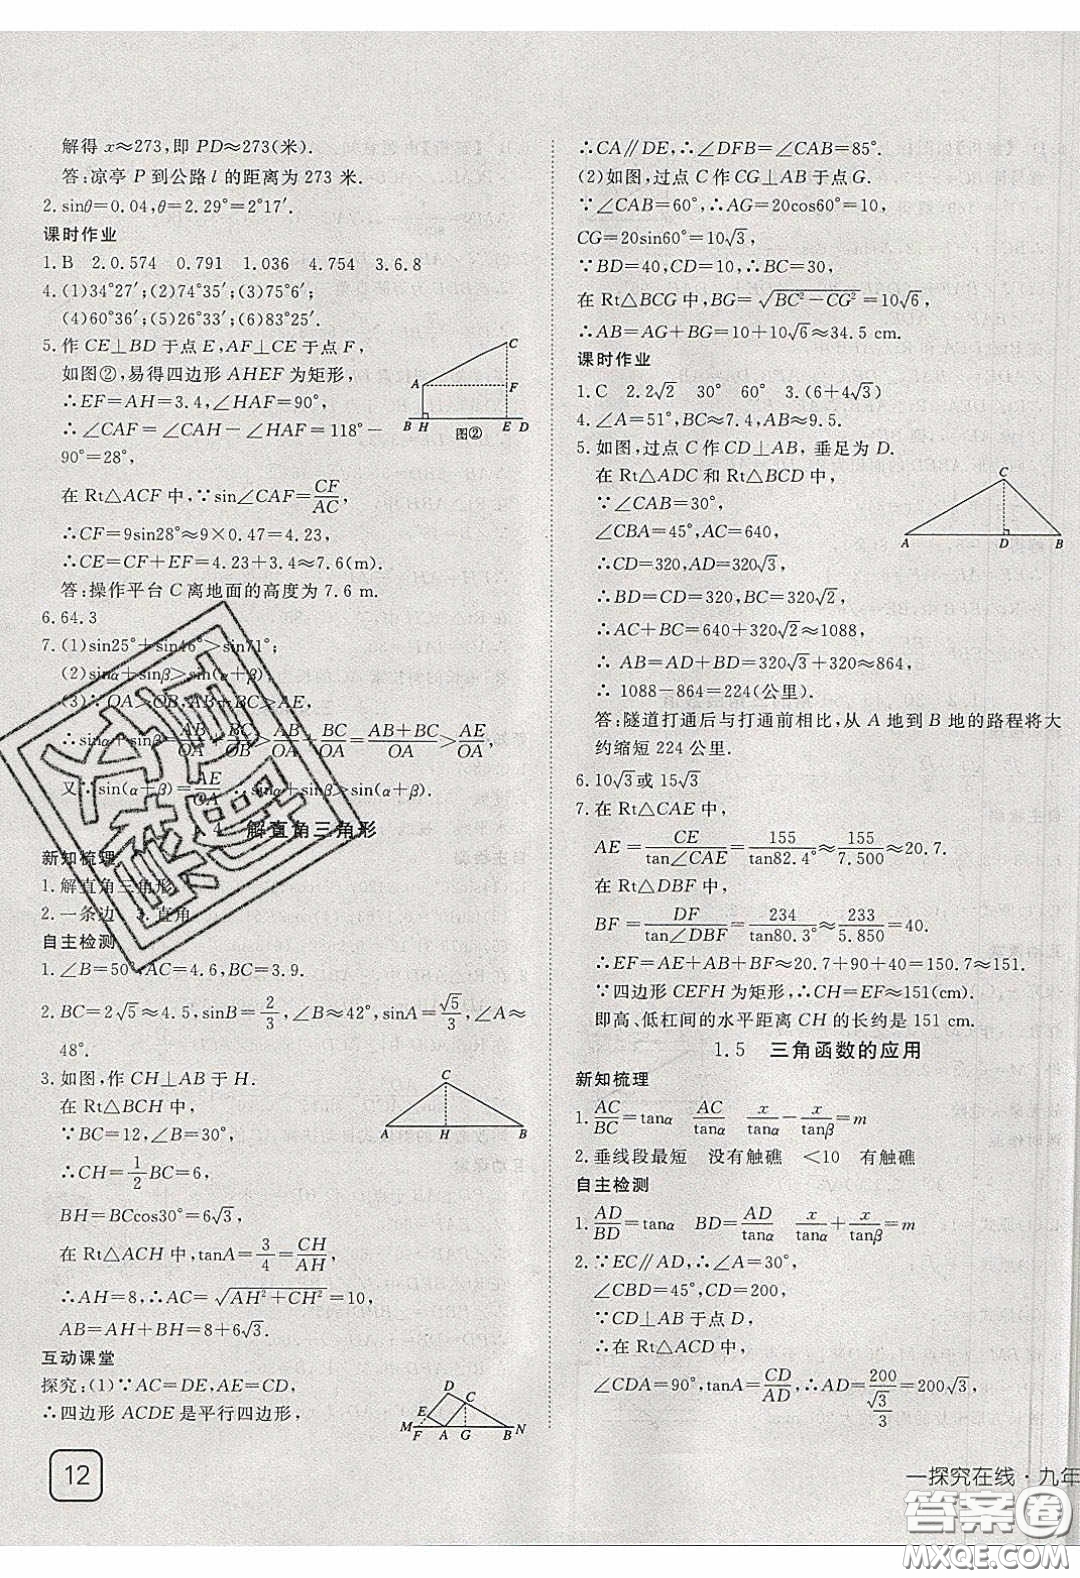 解得 x≈273,即 PD≈273(米).
答:凉亭 P 到公路 l 的距离为 273 米.
2.sinθ=0.04,θ=2.29°=2°17′.
课时作业
1.B 2.0.574 0.791 1.036 4.754 3.6.8
4.(1)34°27′;(2)74°35′;(3)75°6′;
(4)60°36′;(5)26°33′;(6)83°25′.
5.作 CE⊥BD 于点 E,AF⊥CE 于点 F,
如图②,易得四边形 AHEF 为矩形,
∴EF=AH=3.4,∠HAF=90°,
∴∠CAF=∠CAH-∠HAF=118°-
90°=28°,
在 Rt△ACF 中,∵sin∠CAF=CF/AC,
∴CF=9sin28°≈9×0.47=4.23,
∴CE=CF+EF=4.23+3.4≈7.6(m).
答:操作平台 C 离地面的高度为 7.6 m.
C
A
F
B H 图② E D
6.64.3
7.(1)sin25°+sin46°>sin71°;
(2)sinα+sinβ>sin(α+β);
(3)∵OA>OB,AB+BC>AE,
∴sinα+sinβ=AB/OA+BC/OB>AB/OA+BC/OA=(AB+BC)/OA>AE/OA,
又∵sin(α+β)=AE/OA,∴sinα+sinβ>sin(α+β).
4 解直角三角形
新知梳理
1.解直角三角形
2.一条边 直角
自主检测
1.∠B=50°,AC=4.6,BC=3.9.
2.BC=2√5≈4.5,sinB=2/3,∠B≈42°,sinA=√5/3,∠A≈
48°.
3.如图,作 CH⊥AB 于 H.
在 Rt△BCH 中,
∵BC=12,∠B=30°,
∴CH=1/2BC=6,
BH=BCcos30°=6√3,
在 Rt△ACH 中,tanA=3/4=CH/AH,
∴AH=8,∴AC=√(AH²+CH²)=10,
AB=AH+BH=8+6√3.
C
A H B
互动课堂
探究:(1)∵AC=DE,AE=CD,
∴四边形 ACDE 是平行四边形,
D
E C
M F A G B N
12
∴CA∥DE,∴∠DFB=∠CAB=85°.
(2)如图,过点 C 作 CG⊥AB 于点 G.
∵∠CAB=60°,∴AG=20cos60°=10,
CG=20sin60°=10√3,
∵BD=40,CD=10,∴BC=30,
在 Rt△BCG 中,BG=√(BC²-CG²)=10√6,
∴AB=AG+BG=10+10√6≈34.5 cm.
课时作业
1.C 2.2√2 30° 60° 3.(6+4√3)
4.∠A=51°,BC≈7.4,AB≈9.5.
5.如图,过点 C 作 CD⊥AB,垂足为 D.
在 Rt△ADC 和 Rt△BCD 中,
∵∠CAB=30°,
∠CBA=45°,AC=640,
∴CD=320,AD=320√3,
∴BD=CD=320,BC=320√2,
∴AC+BC=640+320√2≈1088,
∴ AB=AD+BD=320√3+320≈864,
∴ 1088-864=224(公里).
答:隧道打通后与打通前相比,从 A 地到 B 地的路程将大
约缩短 224 公里.
C
A D B
6.10√3或 15√3
7.在 Rt△CAE 中,
AE=CE/tan∠CAE=155/tan82.4°≈155/7.500≈20.7.
在 Rt△DBF 中,
BF=DF/tan∠DBF=234/tan80.3°≈234/5.850=40.
∴EF=AE+AB+BF≈20.7+90+40=150.7≈151.
∵四边形 CEFH 为矩形,∴CH=EF≈151(cm).
即高、低杠间的水平距离 CH 的长约是 151 cm.
1.5 三角函数的应用
新知梳理
1.AC/BC=tanα AC/tanα x/tanα-x/tanβ=m
2.垂线段最短 没有触礁 <10 有触礁
自主检测
1.AD/BD=tanα BD=AD/tanα x/tanα+x/tanβ=m
2.∵EC∥AD,∴∠A=30°,
∠CBD=45°,CD=200,
∵CD⊥AB 于点 D,
∴在 Rt△ACD 中,
∠CDA=90°,tanA=CD/AD,∴AD=200/(√3/3)=200√3,
一探究在线·九年
答案圈
MXQE.COM